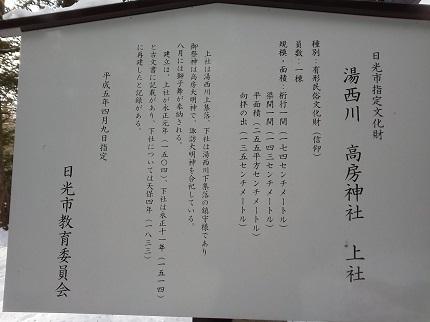 日光市指定文化財
湯西川 高房神社 上社
種別：有形民俗文化財（信仰）
員数：一棟
規模・面積：桁行一間（一七四センチメートル）
梁間一間（一四三センチメートル）
平面積（二五五平方センチメートル）
向拝の出（一三五センチメートル）
上社は湯西川上集落、下社は湯西川下集落の鎮守様であり
御祭神は高房大明神で、諏訪大明神を合祀している。
八月には獅子舞が奉納される。
建立は、上社が永正元年（一五〇四）、下社は永正十一年（一五一四）
と古文書に記載があり、下社については天保四年（一八三三）
に再建したと記録がある。
平成五年四月九日指定
日光市教育委員会